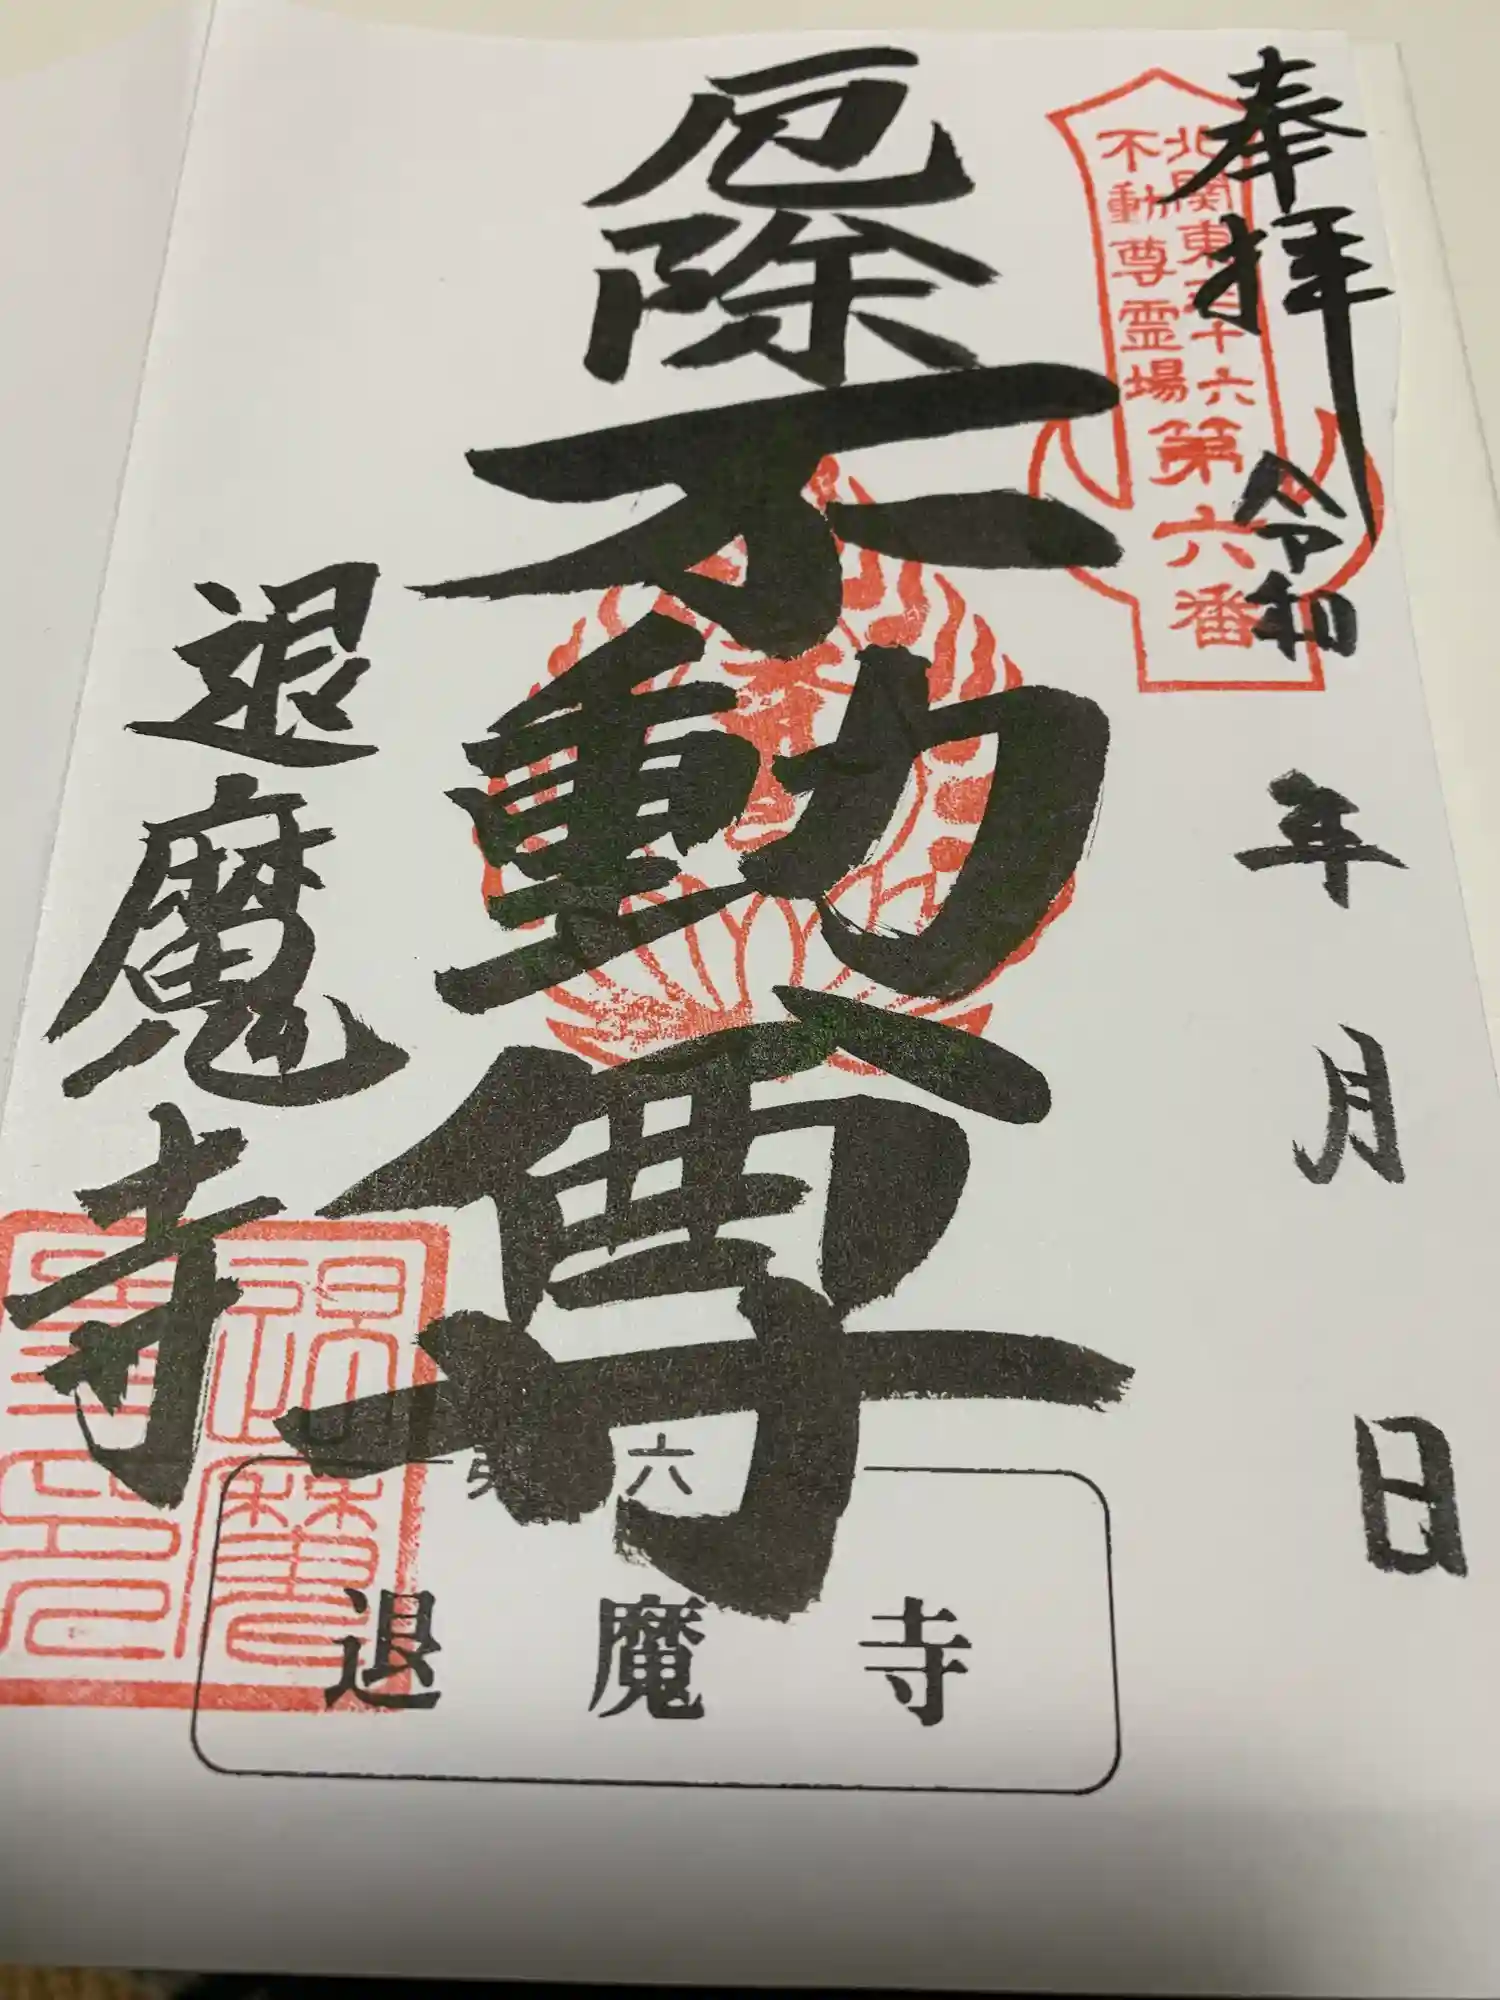 奉拝
令和 年 月 日
北関東三十六
不動尊霊場
第六番
厄除不動尊
退魔寺
六
退魔寺